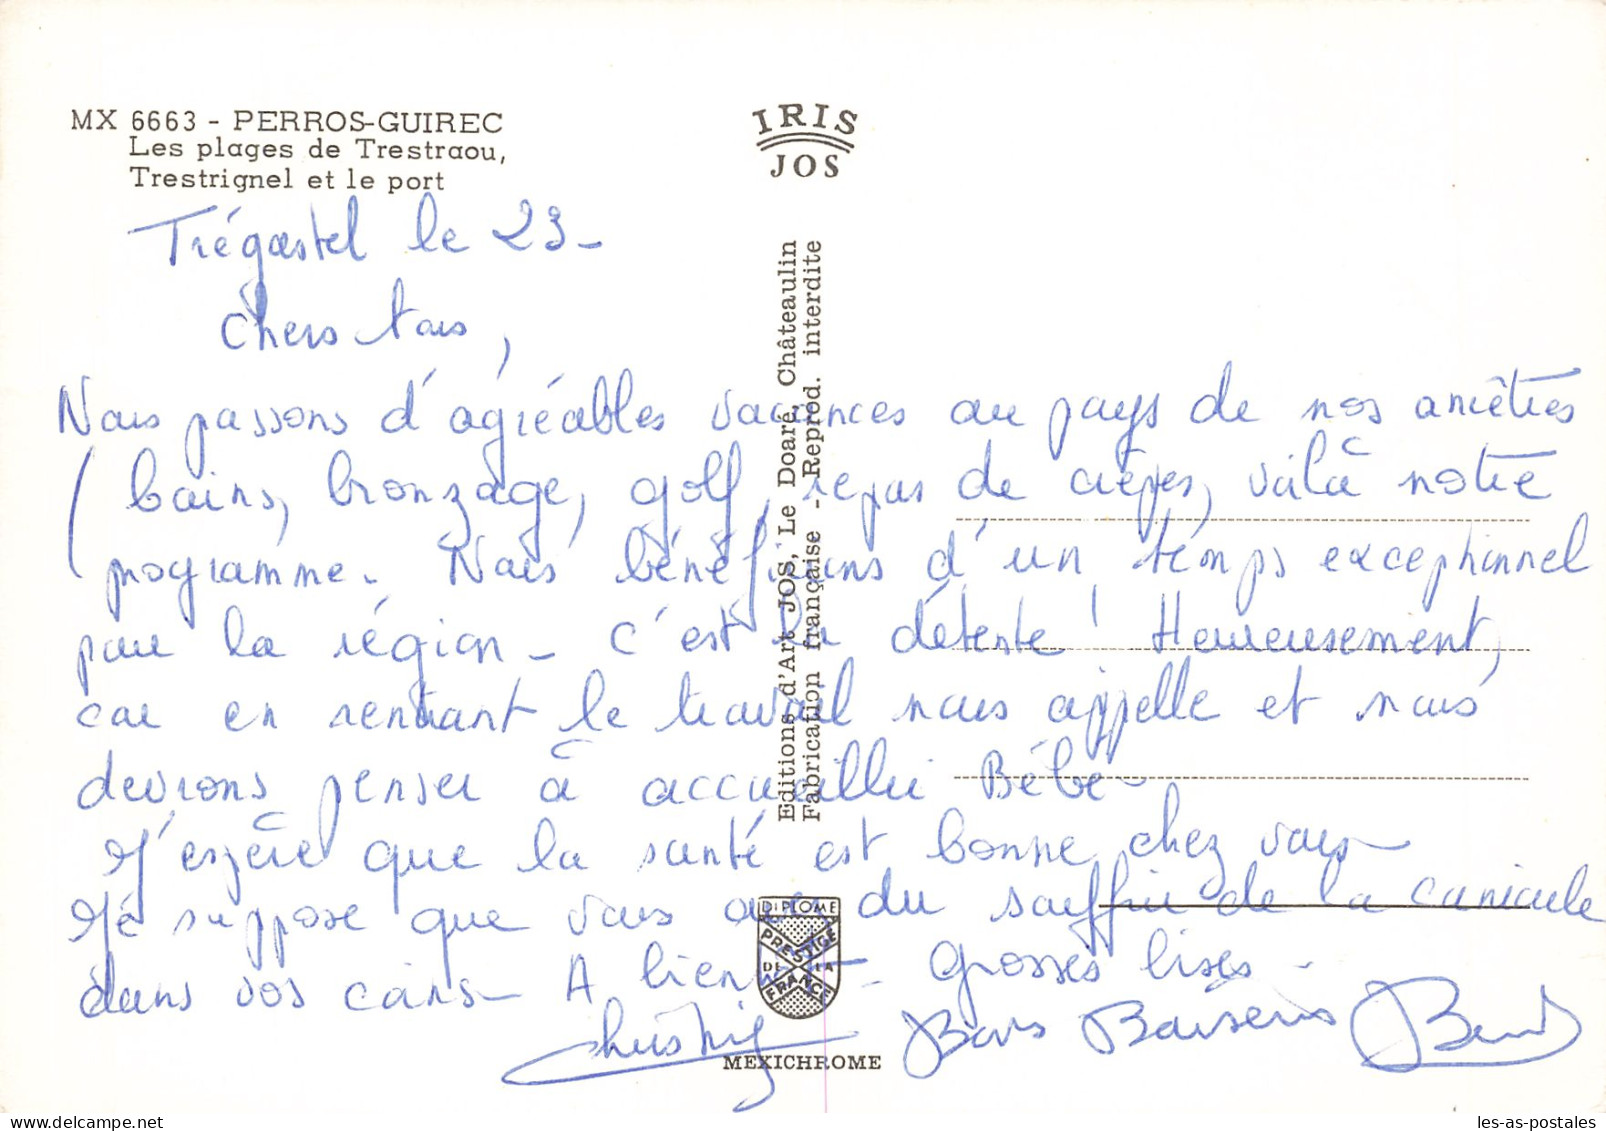 MX 6663 - PERROS-GUIREC
Les plages de Trestraou,
Trestrignel et le port
IRIS
JOS
Trégastel le 23-
Chers tous,
Nous passons d'agréables vacances au pays de nos ancêtres
(bains, bronzage, golf, repas de crêpes, voilà notre
programme. Nous bénéficions d'un temps exceptionnel
pour la région - C'est la détente! Heureusement,
car en rentrant le travail nous appelle et nous
devrons penser à accueillir Bébé-
J'espère que la santé est bonne chez vous-
Je suppose que vous avez du souffrir de la canicule
dans vos coins- A bientôt- Grosses bises-
Christig Bons Baisers
Editions d'Art JOS, Le Doaré, Châteaulin
Fabrication française - Reprod. interdite
DIPLOME
PRESTIGE
DE LA
FRANCE
MEXICHROME
les-as-postales